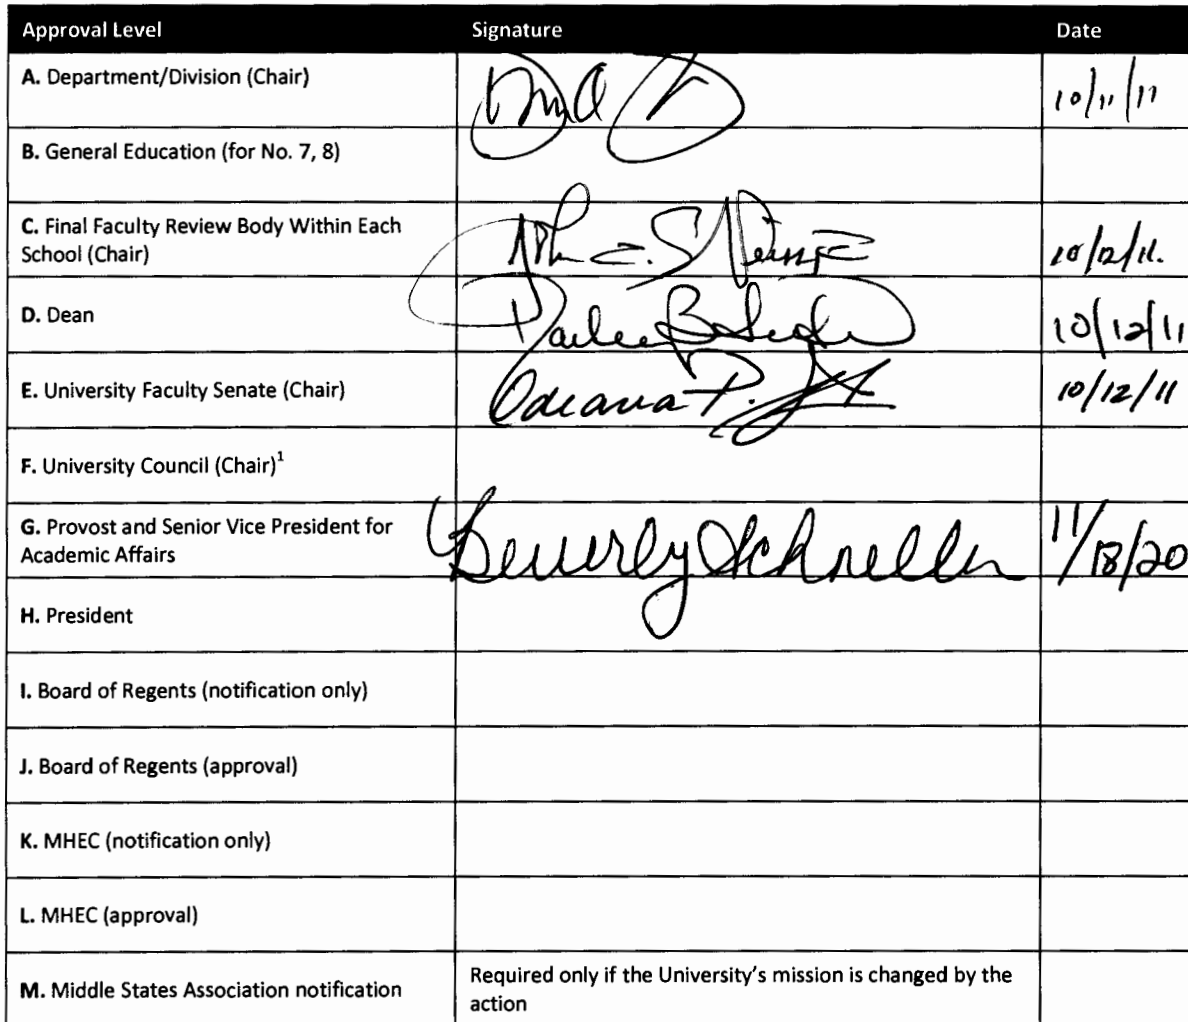 Approval Level Signature Date
A. Department/Division (Chair) 10/11/11
B. General Education (for No. 7, 8)
C. Final Faculty Review Body Within Each
School (Chair) John C. 10/12/11.
D. Dean 10/12/11
E. University Faculty Senate (Chair) P. 10/12/11
F. University Council (Chair)¹
G. Provost and Senior Vice President for
Academic Affairs Beverly Schneller 11/18/20
H. President
I. Board of Regents (notification only)
J. Board of Regents (approval)
K. MHEC (notification only)
L. MHEC (approval)
M. Middle States Association notification Required only if the University's mission is changed by the
action